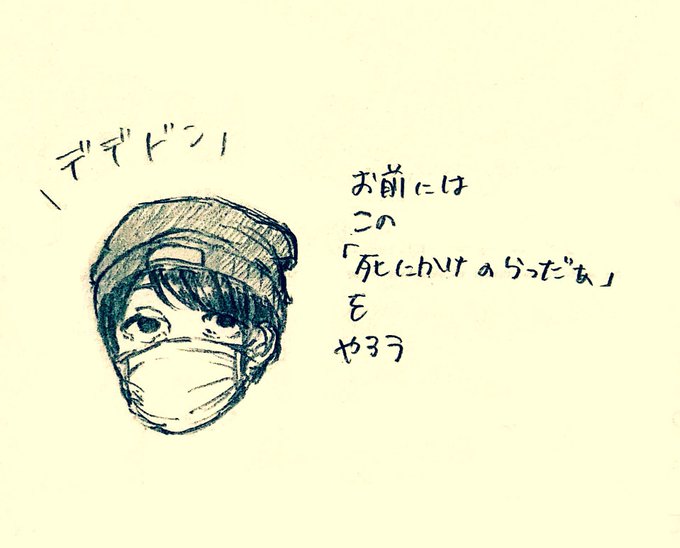 \デデドン/
お前には
この
「死にかけのらっだぁ」
を
やろう